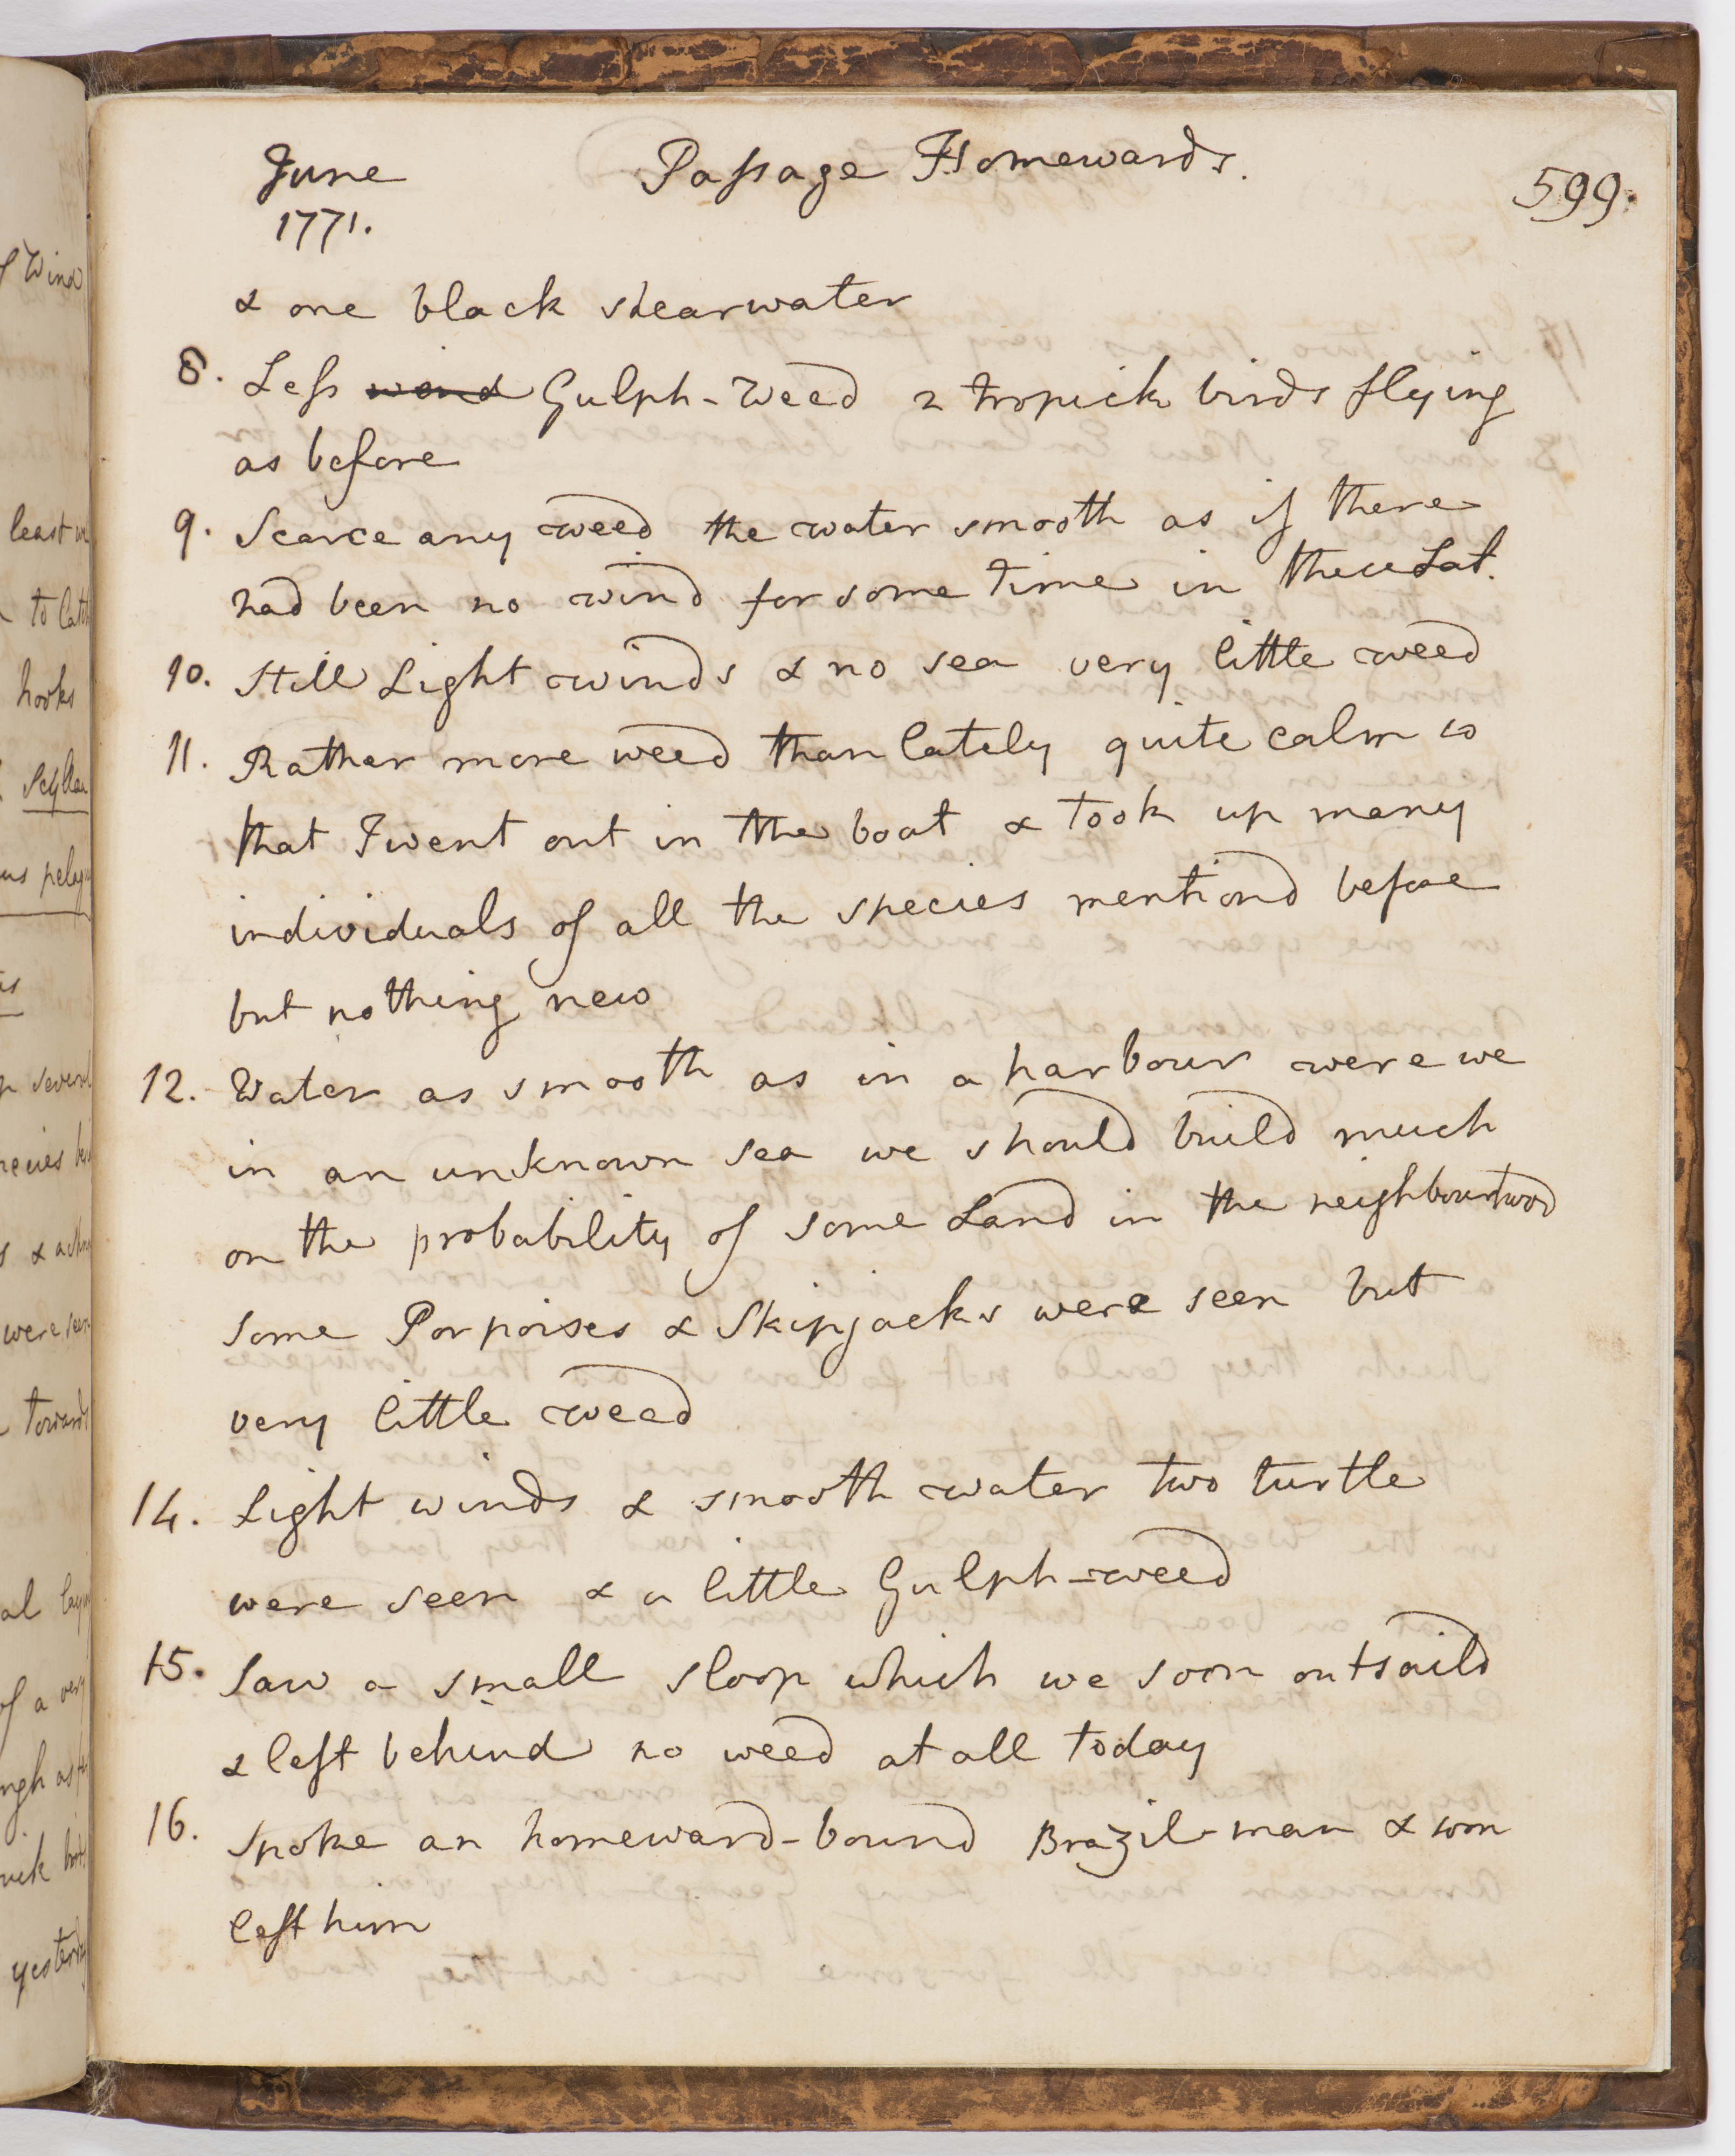 June
1771.
Passage Homewards.
599.
& one black shearwater
8. Less wind Gulph-Weed 2 tropick birds flying
as before
9. Scarce any weed the water smooth as if there
had been no wind for some time in these Lat.
10. Still Light winds & no sea very little weed
11. Rather more weed than lately quite calm so
that I went out in the boat & took up many
individuals of all the species mentiond before
but nothing new
12. Water as smooth as in a harbour were we
in an unknown sea we should build much
on the probability of some Land in the neighbourhood
some Porpoises & Skipjacks were seen but
very little weed
14. Light winds & smooth water two turtle
were seen & a little Gulph-weed
15. Saw a small sloop which we soon outsaild
& left behind no weed at all today
16. Spoke an homeward-bound Brazil-man & soon
left him